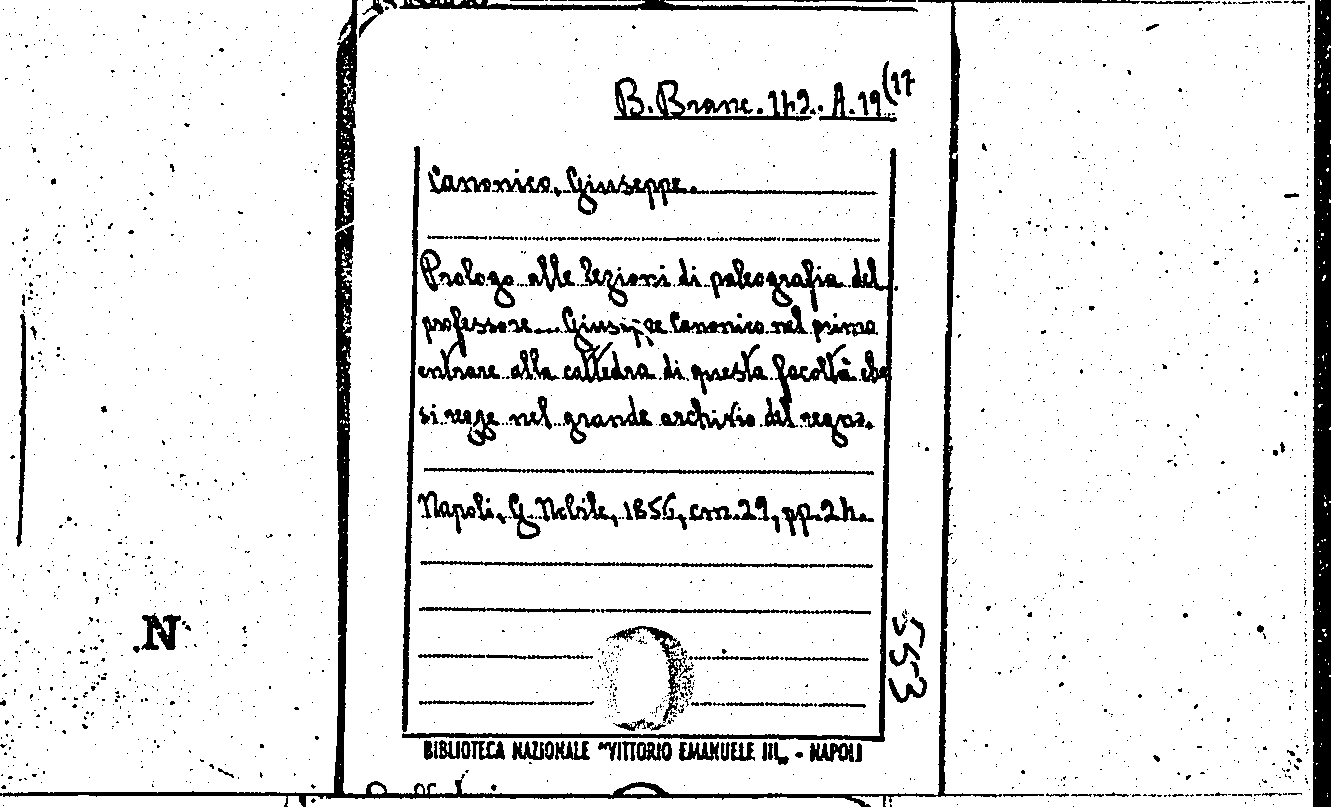 B. Branc. 112. A. 19(17
Canonico, Giuseppe.
Prologo alle lezioni di paleografia del
professore... Giuseppe Canonico nel primo
entrare alla cattedra di questa facoltà che
si regge nel grande archivio del regno.
Napoli, G. Nobile, 1856, cm. 29, pp. 24.
553
N
BIBLIOTECA NAZIONALE "VITTORIO EMANUELE III„ - NAPOLI